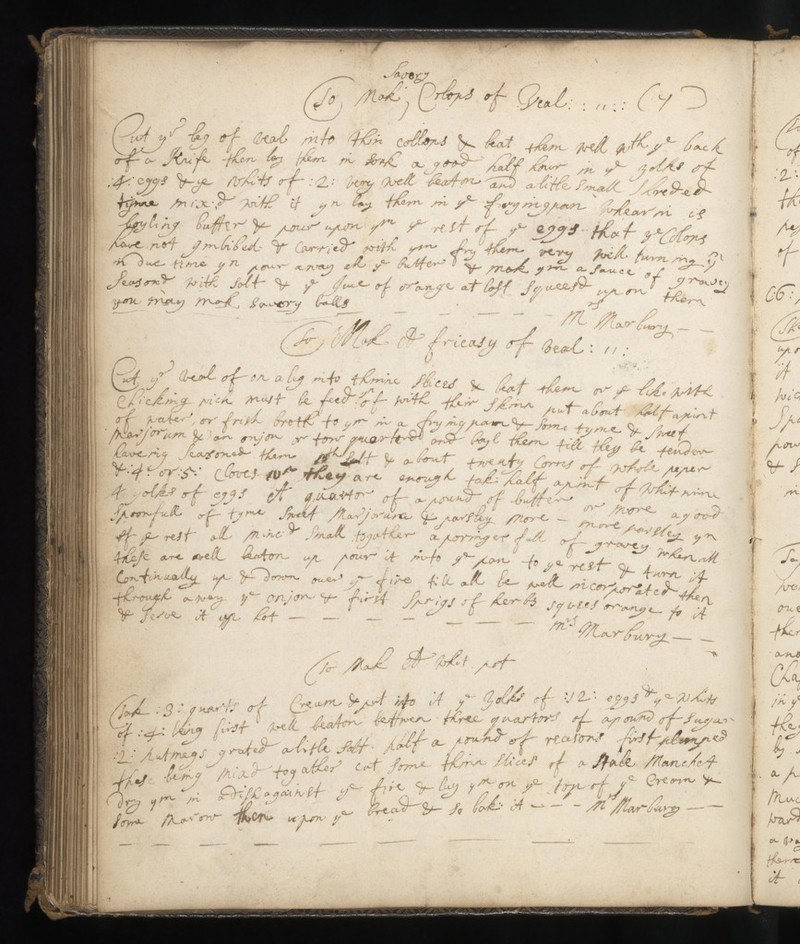 Savory
To Mak Colops of Veal: :11:: (7)
Cut yr leg of veal into thin collops & beat them well wth ye back
of a Knife then lay them in soak a good half hour in ye yolks of
:4: eggs & ye whits of :2: very well beaton and a litle small shreded
tyme mix:d with it yn lay them in ye fryingpan whearin is
boyling butter & pour upon ym ye rest of ye eggs that ye Colops
have not Imbibed & Carried with ym fry them very well turning ym
in due time yn pour away all ye butter & mak ym a sauce of gravey
Seasond with salt & ye Juce of orange at last squeesd upon them
you may mak savory balls — — — — — — Mrs Marbury — —
To Mak A fricasy of veal: 11:
Cut yr veal of on a leg into thinne slices & beat them or ye like with
Chicking wich must be fleed of with their skinn put about half a pint
of water, or frish broth to ym in a frying pan & some tyme & sweet
Marjorum & an onjon or tow quartered and boyl them till they be tender
haveing seasoned them wth salt & about twenty Cornes of whole peper
& :4: or :5: Cloves wn they are enough tak half a pint of whit wine
4 yolks of eggs A quartor of a pound of butter or more a good
spoonfull of tyme sweet Marjorum & parsley more — more parsley yn
all ye rest all minc'd small togather a poringer full of gravey when all
these are well beaton up pour it into ye pan to ye rest & turn it
Continually up & down over ye fire till all be well incorporated then
through away ye onjon & first sprigs of herbs squees orange to it
& serve it up hot — — — — — — — Mrs Marbury — —
To Mak A Whit pot
Tak :3: quarts of Cream & put into it ye yolks of :12: eggs & ye whits
of :4: being first well beaton between three quartors of a pound of sugar
:2: nutmegs grated a litle salt half a pound of reasons first plumped
these being mixd togather cut some thinn slices of a stale Manchet
Dry ym in a Dish against ye fire & lay ym on ye top of ye Cream &
some Marow then upon ye bread & so bake it — — — Mrs Marbury — —